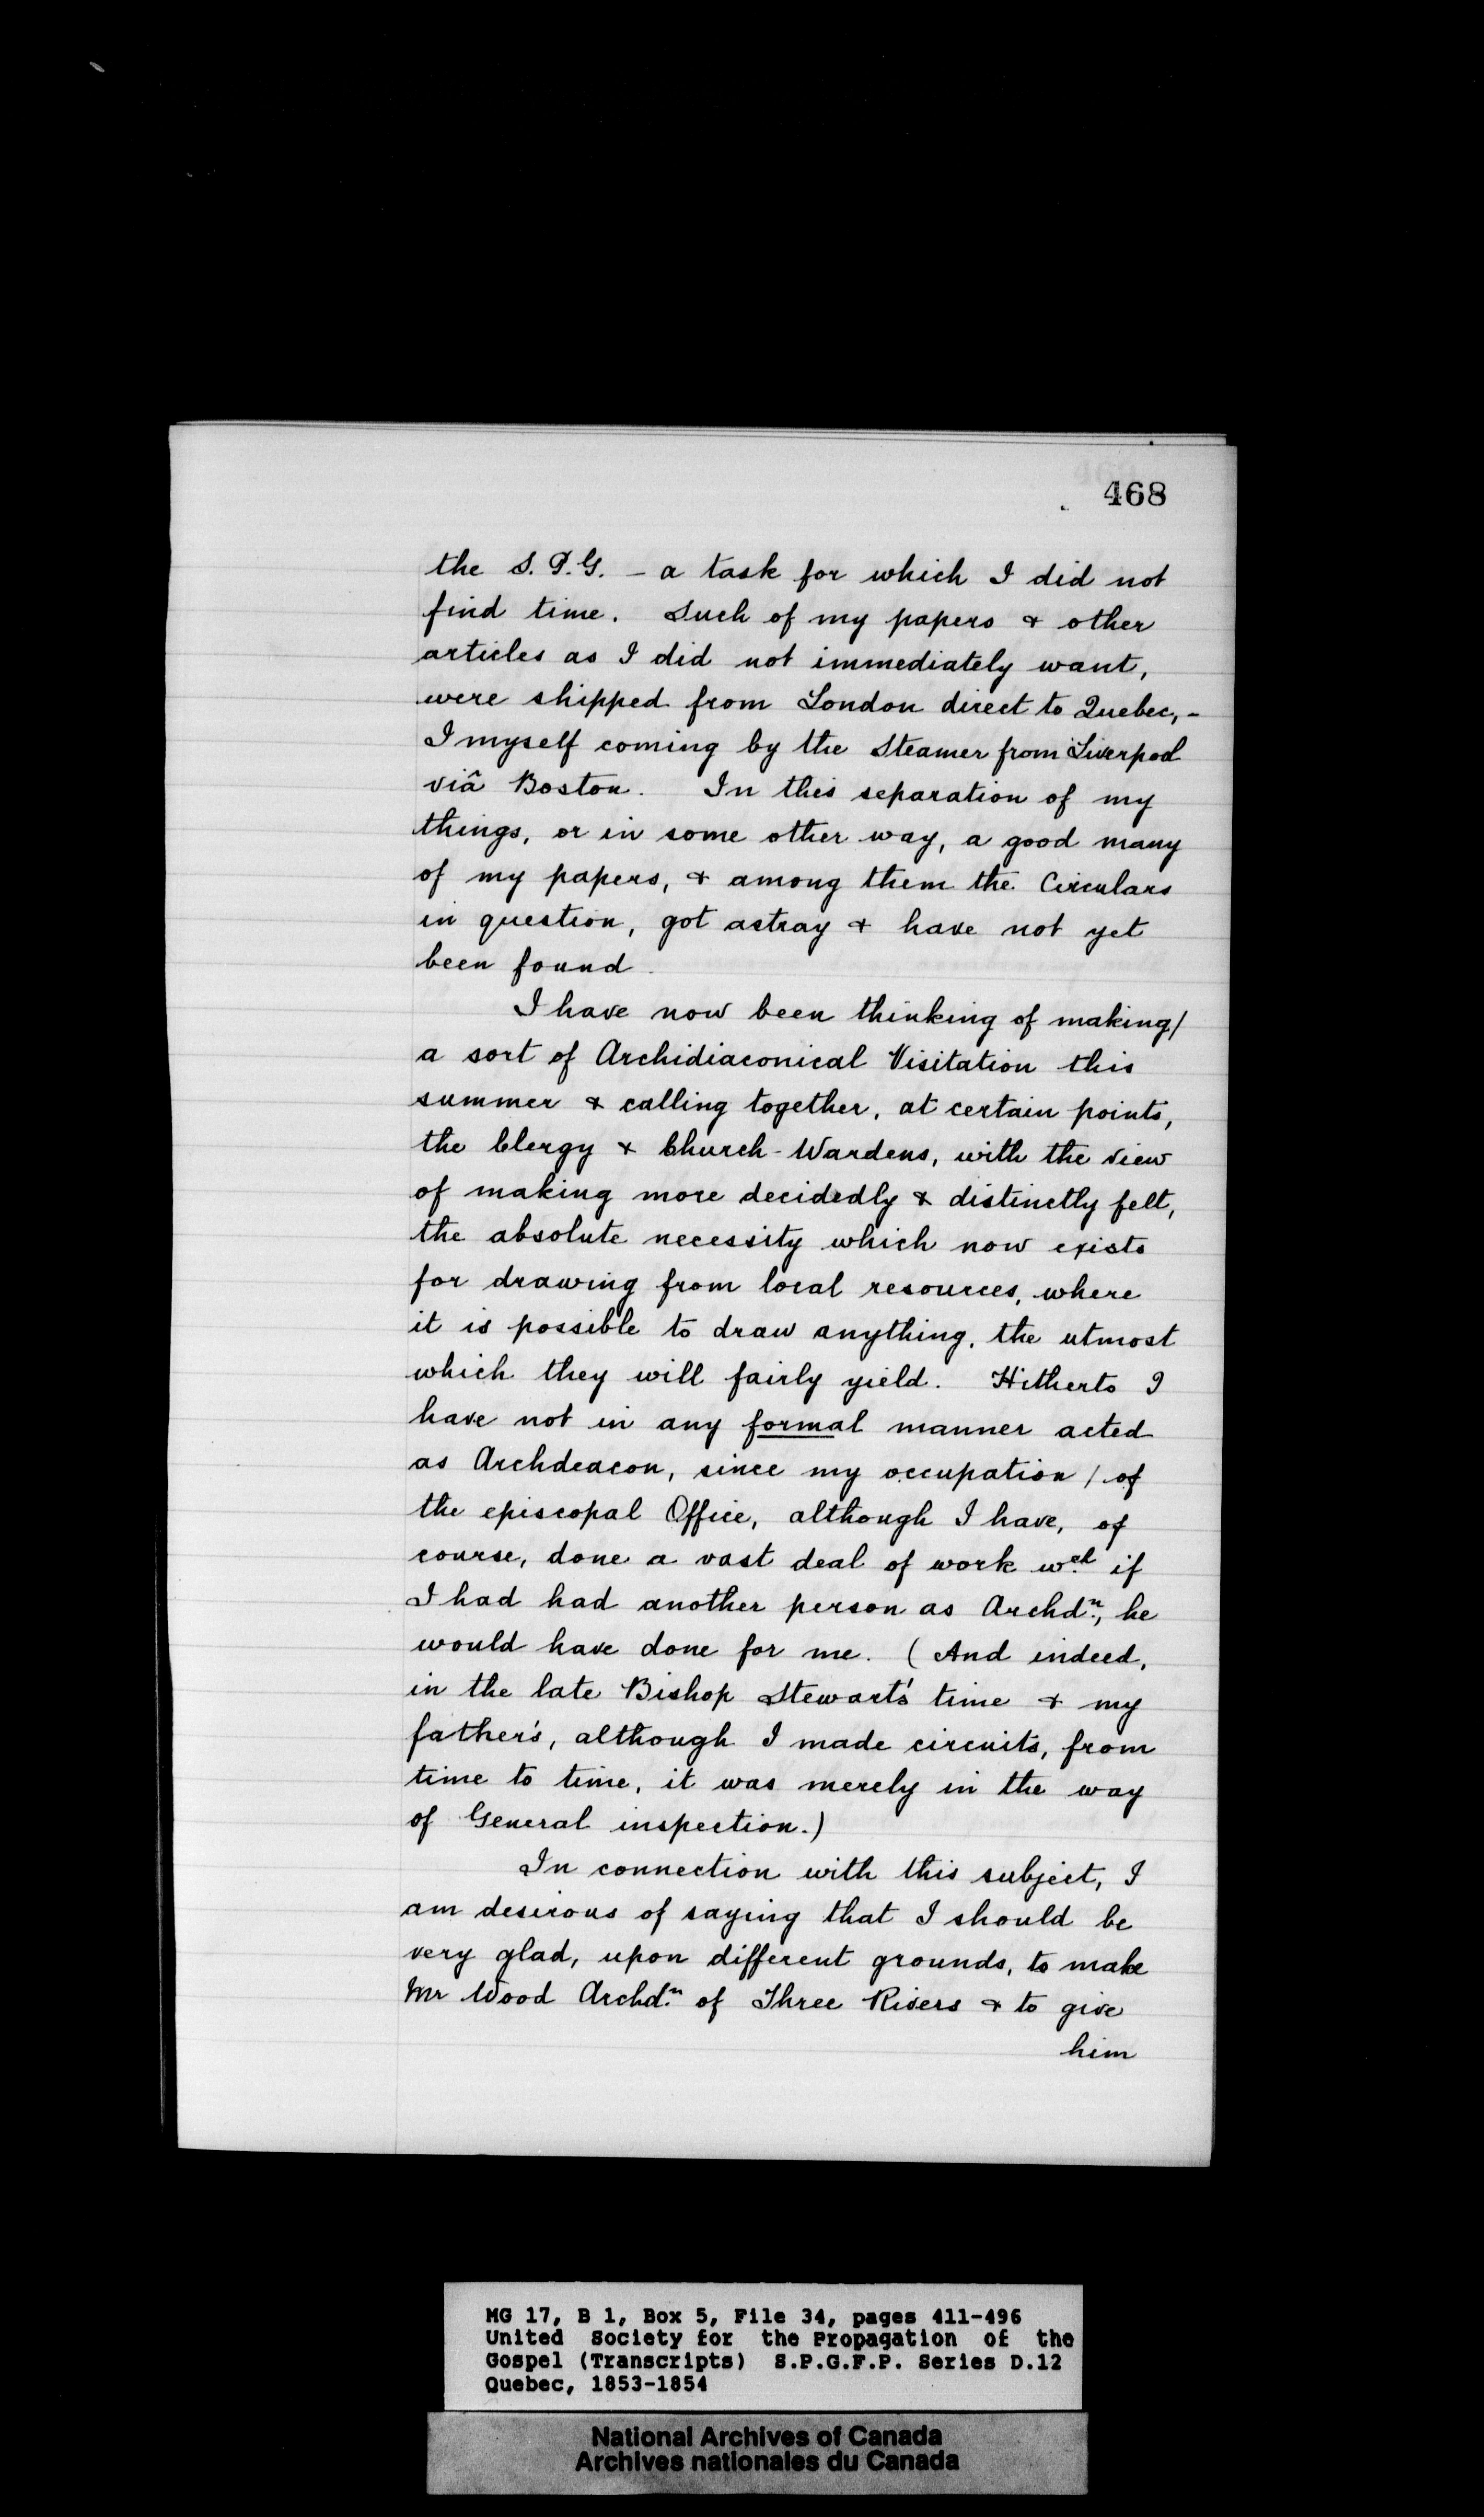 468
the S.P.G. – a task for which I did not
find time. Such of my papers & other
articles as I did not immediately want,
were shipped from London direct to Quebec, –
I myself coming by the Steamer from Liverpool
viâ Boston. In this separation of my
things, or in some other way, a good many
of my papers, & among them the Circulars
in question, got astray & have not yet
been found.
I have now been thinking of making/
a sort of Archidiaconical Visitation this
summer & calling together, at certain points,
the Clergy & Church-Wardens, with the view
of making more decidedly & distinctly felt,
the absolute necessity which now exists
for drawing from local resources, where
it is possible to draw anything, the utmost
which they will fairly yield. Hitherto I
have not in any formal manner acted
as Archdeacon, since my occupation / of
the episcopal Office, although I have, of
course, done a vast deal of work wch. if
I had had another person as Archdn., he
would have done for me. (And indeed,
in the late Bishop Stewart's time & my
father's, although I made circuits, from
time to time, it was merely in the way
of General inspection.)
In connection with this subject, I
am desirous of saying that I should be
very glad, upon different grounds, to make
Mr Wood Archdn. of Three Rivers & to give
him
MG 17, B 1, Box 5, File 34, pages 411-496
United Society for the Propagation of the
Gospel (Transcripts) S.P.G.F.P. Series D.12
Quebec, 1853-1854
National Archives of Canada
Archives nationales du Canada